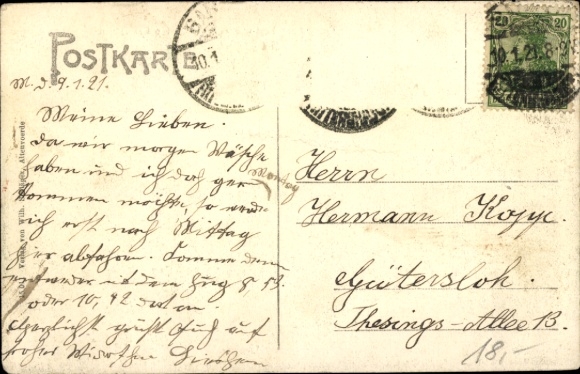 POSTKARTE
M. d. 9.1.21.
Meine Lieben.
Da wir morgen Wäsche
haben und ich doch gern
Montag
kommen möchte, so werde
ich erst nach Mittag
hier abfahren. Komme dann
entweder mit dem Zug 8,53
oder 10,42 dort an.
Herzlichst grüßt Euch auf
frohes Wiedersehn
Herrn
Hermann Kopp.
Gütersloh.
Thesings-Allee 13.
20 20
10.1.21.8-9
18,-
Verlag von Wilh. Altenvoerde